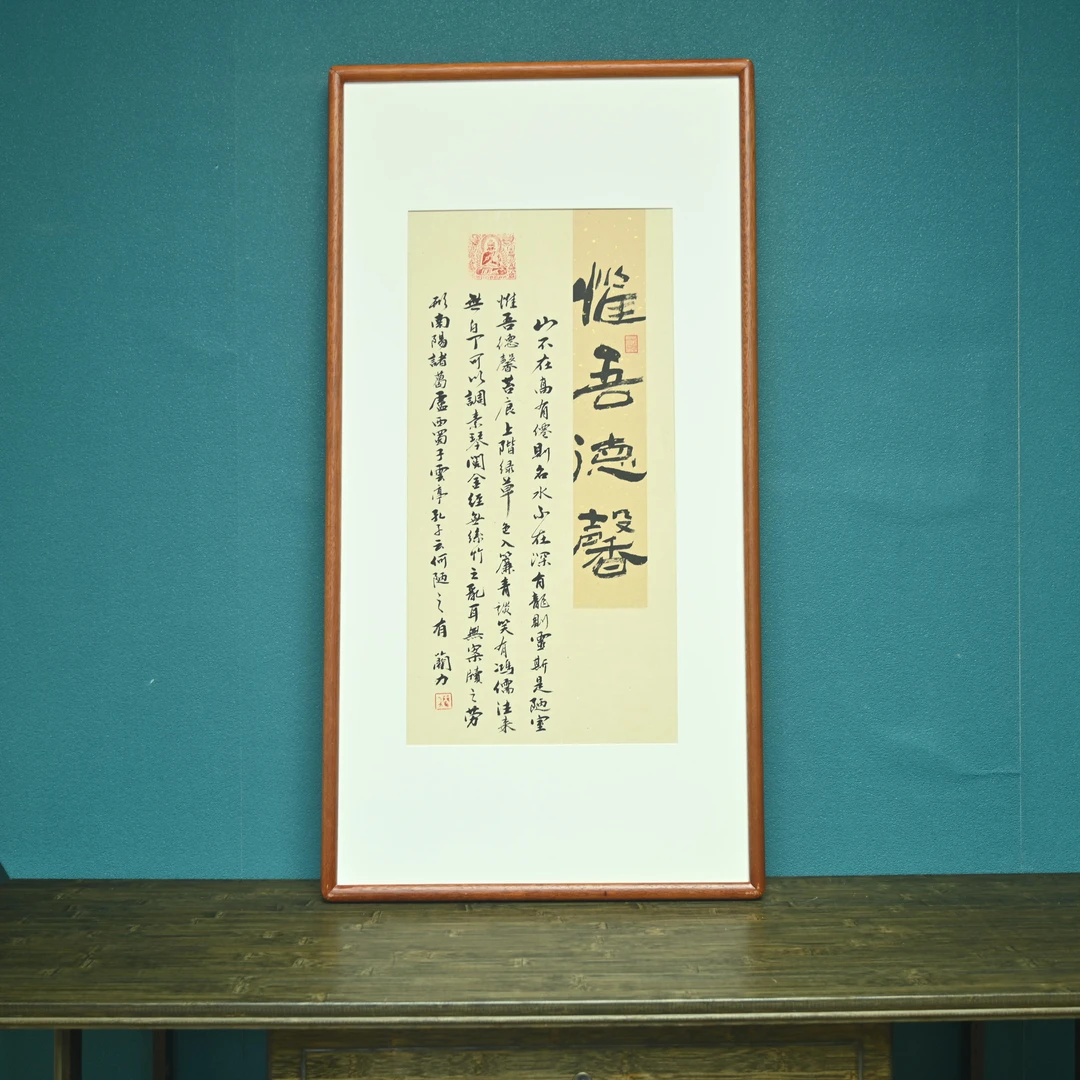 惟吾德馨
山不在高有僊則名水不在深有龍則靈斯是陋室
惟吾德馨苔痕上階緑草色入簾青談笑有鴻儒往来
無白丁可以調素琴閲金經無絲竹之亂耳無案牘之勞
形南陽諸葛廬西蜀子雲亭孔子云何陋之有 蘭力